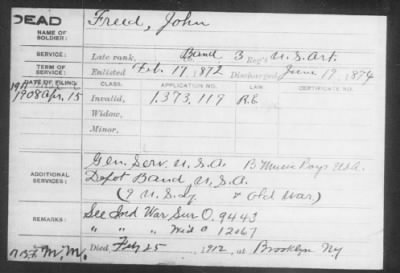 DEAD
NAME OF SOLDIER: Freed, John
SERVICE: Late rank, Band 3 Reg't U.S. Art.
TERM OF SERVICE: Enlisted Feb. 17, 1872 Discharged June 19, 1874
DATE OF FILING. CLASS. APPLICATION NO. LAW. CERTIFICATE NO.
1908 Apr. 15 Invalid, 1,373,119 R.E.
Widow,
Minor,
Gen. Serv. U.S.A. B Music Boys U.S.A.
ADDITIONAL SERVICES: Depot Band U.S.A.
(9 U.S. Inf. & Old War)
REMARKS: See Ind War Sur O. 9443
" " " Wid O 12067
Died Feb 25 1912, at Brooklyn NY
M.M.